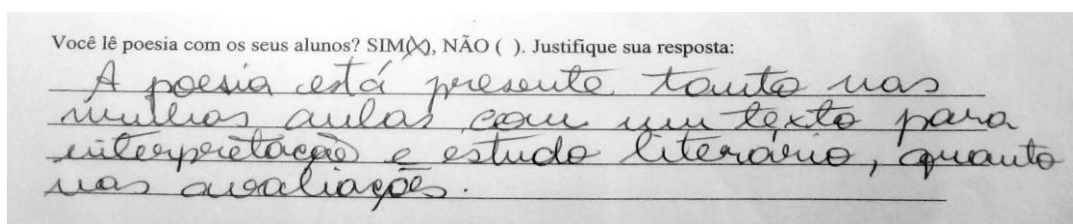 Você lê poesia com os seus alunos? SIM(X), NÃO ( ). Justifique sua resposta:
A poesia está presente tanto nas
minhas aulas com um texto para
interpretação e estudo literário, quanto
nas avaliações.